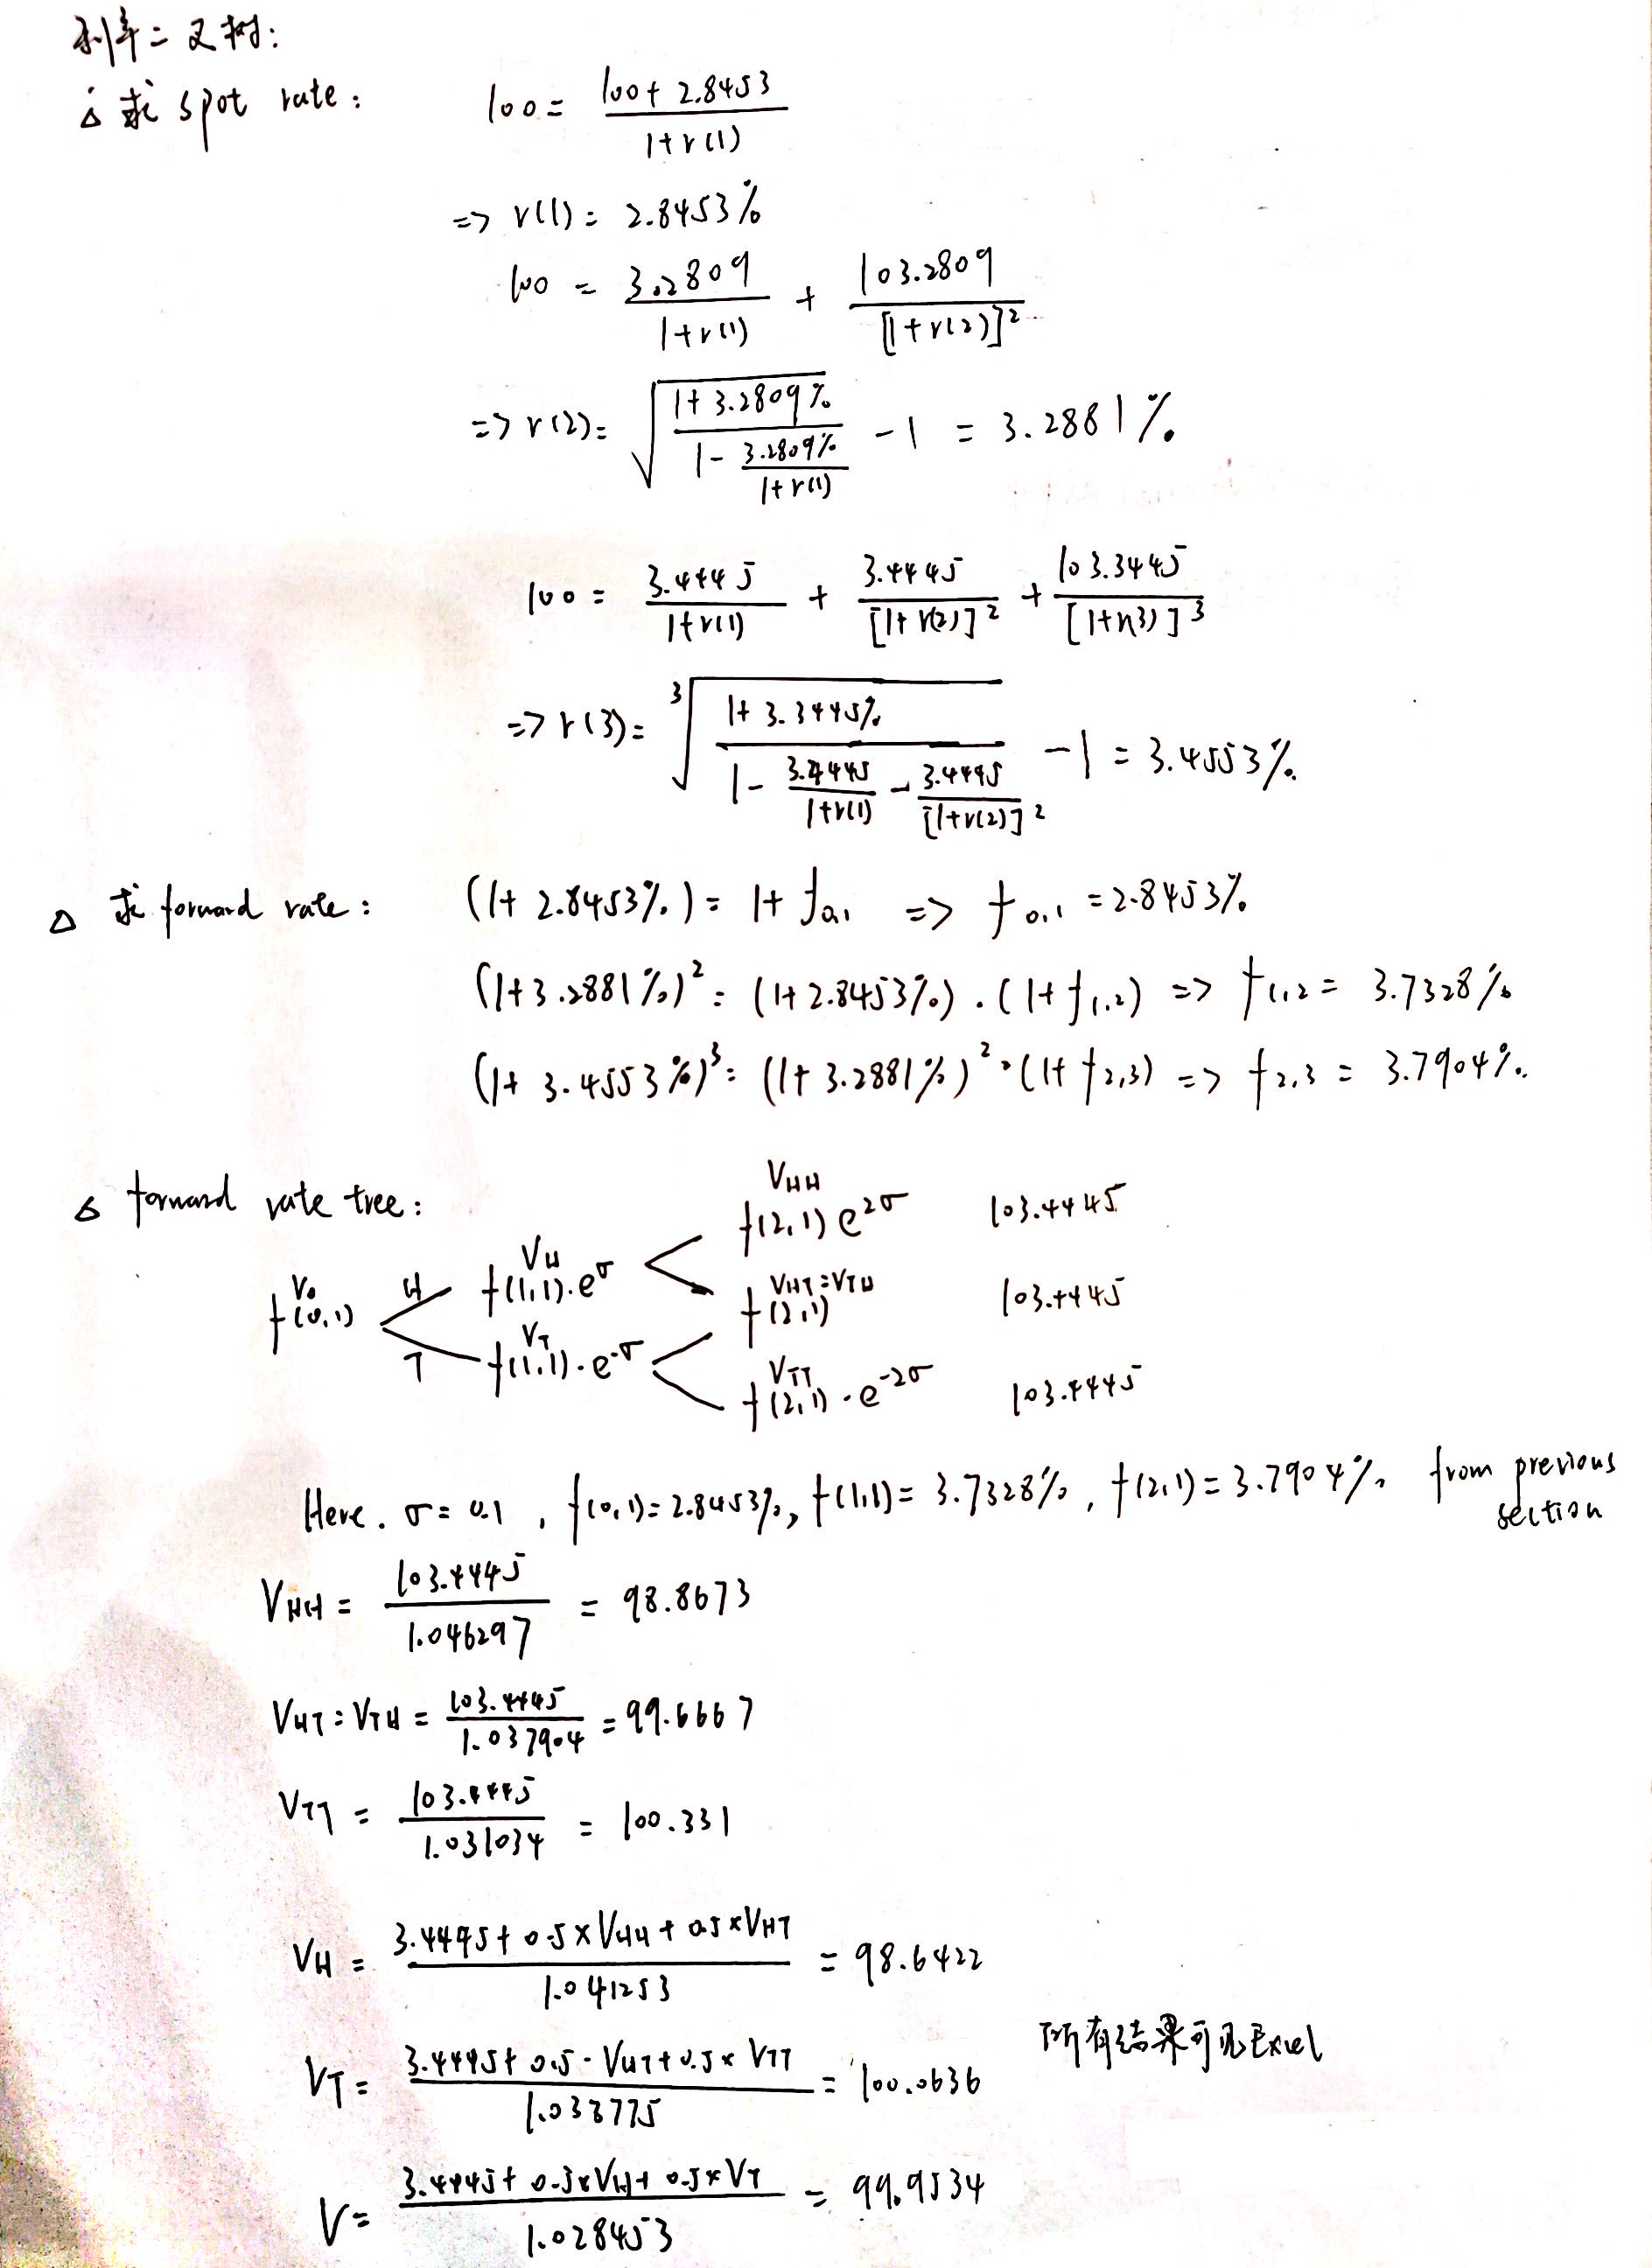 利率二叉树:
△ 求 spot rate: 100 = (100 + 2.8453) / (1+r(1))
=> r(1) = 2.8453%
100 = 3.2809 / (1+r(1)) + 103.2809 / [1+r(2)]²
=> r(2) = √((1+3.2809%) / (1 - 3.2809% / (1+r(1)))) - 1 = 3.2881%
100 = 3.4445 / (1+r(1)) + 3.4445 / [1+r(2)]² + 103.3445 / [1+r(3)]³
=> r(3) = ³√((1+3.3445%) / (1 - 3.4445 / (1+r(1)) - 3.4445 / [1+r(2)]²)) - 1 = 3.4553%
△ 求 forward rate: (1+2.8453%) = 1+f0,1 => f0,1 = 2.8453%
(1+3.2881%)² = (1+2.8453%)·(1+f1,2) => f1,2 = 3.7328%
(1+3.4553%)³ = (1+3.2881%)²·(1+f2,3) => f2,3 = 3.7904%
△ forward rate tree:
VHH
f(2,1) e^2σ 103.4445
VH
f(1,1)·e^σ
V0 H VHT = VTH
f(0,1) f(2,1) 103.4445
T VT
f(1,1)·e^-σ
VTT
f(2,1)·e^-2σ 103.4445
Here. σ = 0.1, f(0,1) = 2.8453%, f(1,1) = 3.7328%, f(2,1) = 3.7904% from previous section
VHH = 103.4445 / 1.046297 = 98.8673
VHT = VTH = 103.4445 / 1.037904 = 99.6667
VTT = 103.4445 / 1.031034 = 100.331
VH = (3.4445 + 0.5 × VHH + 0.5 × VHT) / 1.041253 = 98.6422
所有结果可见Excel
VT = (3.4445 + 0.5 · VHT + 0.5 × VTT) / 1.033775 = 100.0636
V = (3.4445 + 0.5 × VH + 0.5 × VT) / 1.028453 = 99.9534